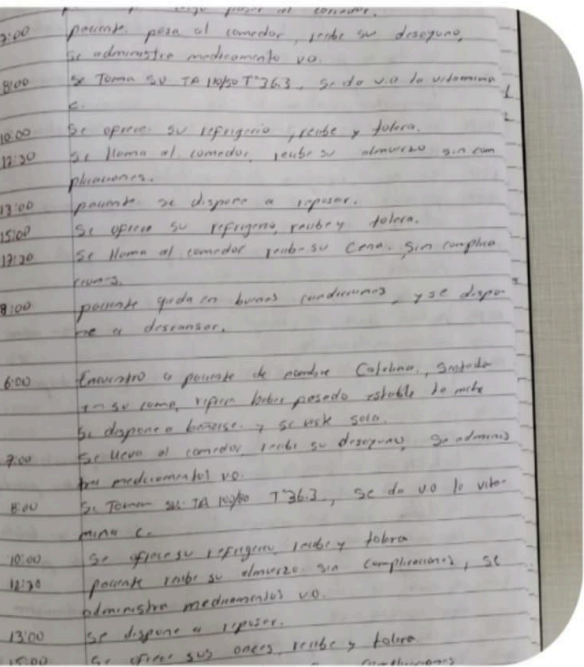 pasar al comedor.
7:00 paciente pasa al comedor, recibe su desayuno,
se administra medicamento vo.
8:00 se Toma su TA 110/50 T° 36.3, se da v.o la vitamina
c.
10:00 se ofrece su refrigerio, recibe y tolera.
12:30 se llama al comedor, recibe su almuerzo sin com
plicaciones.
13:00 paciente se dispone a reposar.
15:00 se ofrece su refrigerio, recibe y tolera.
17:30 se llama al comedor recibe su cena. sin complica
ciones.
8:00 paciente queda en buenas condiciones, y se dispo
ne a descansar.
6:00 Encuentro a paciente de nombre sentada
en su cama, refiere haber pasado estable la noche
se dispone a bañarse y se viste sola.
7:00 se lleva al comedor, recibe su desayuno, se adminis
tra medicamentos vo.
8:00 se Toman sus TA T° 36.3, se da vo la vita-
mina c.
10:00 se ofrece su refrigerio, recibe y tolera
12:30 paciente recibe su almuerzo sin complicaciones, se
administra medicamentos vo.
13:00 se dispone a reposar.
15:00 se ofrece sus onces, recibe y tolera